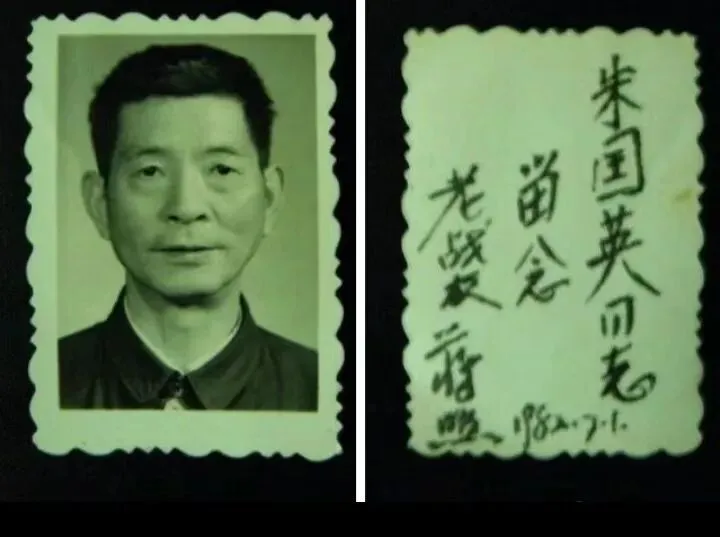 朱国英同志
留念
老战友
蒋照
1982.7.1.